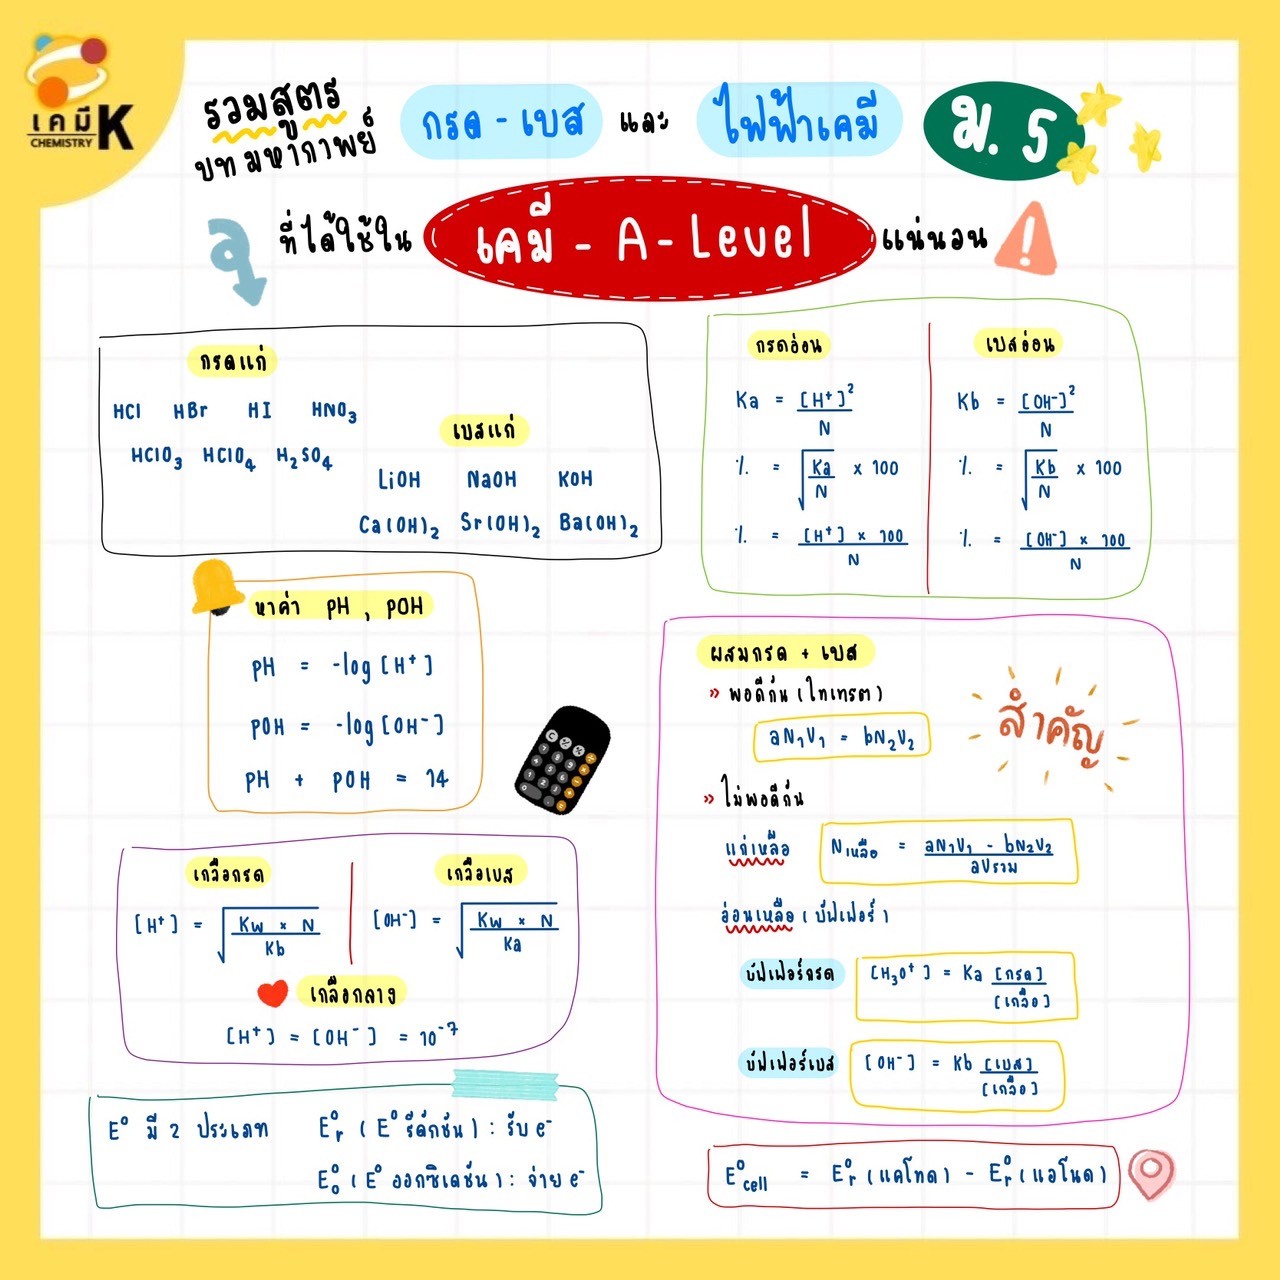 เคมี K
CHEMISTRY
รวมสูตร
บทมหากาพย์
กรด - เบส และ ไฟฟ้าเคมี ม. 5
ที่ได้ใช้ใน เคมี - A - Level แน่นอน
กรดแก่
HCl HBr HI HNO₃
HClO₃ HClO₄ H₂SO₄
เบสแก่
LiOH NaOH KOH
Ca(OH)₂ Sr(OH)₂ Ba(OH)₂
กรดอ่อน
Ka = [H⁺]²/N
% = √(Ka/N) × 100
% = [H⁺] × 100/N
เบสอ่อน
Kb = [OH⁻]²/N
% = √(Kb/N) × 100
% = [OH⁻] × 100/N
หาค่า pH , pOH
pH = -log [H⁺]
pOH = -log [OH⁻]
pH + pOH = 14
ผสมกรด + เบส
» พอดีกัน (ไทเทรต)
aN₁V₁ = bN₂V₂
สำคัญ
» ไม่พอดีกัน
แก่เหลือ Nเหลือ = aN₁V₁ - bN₂V₂/aVรวม
อ่อนเหลือ (บัฟเฟอร์)
บัฟเฟอร์กรด [H₃O⁺] = Ka [กรด]/[เกลือ]
บัฟเฟอร์เบส [OH⁻] = Kb [เบส]/[เกลือ]
เกลือกรด
[H⁺] = √(Kw × N/Kb)
เกลือเบส
[OH⁻] = √(Kw × N/Ka)
เกลือกลาง
[H⁺] = [OH⁻] = 10⁻⁷
E° มี 2 ประเภท E°r (E° รีดักชัน) : รับ e⁻
E°o (E° ออกซิเดชัน) : จ่าย e⁻
E°cell = E°r (แคโทด) - E°r (แอโนด)